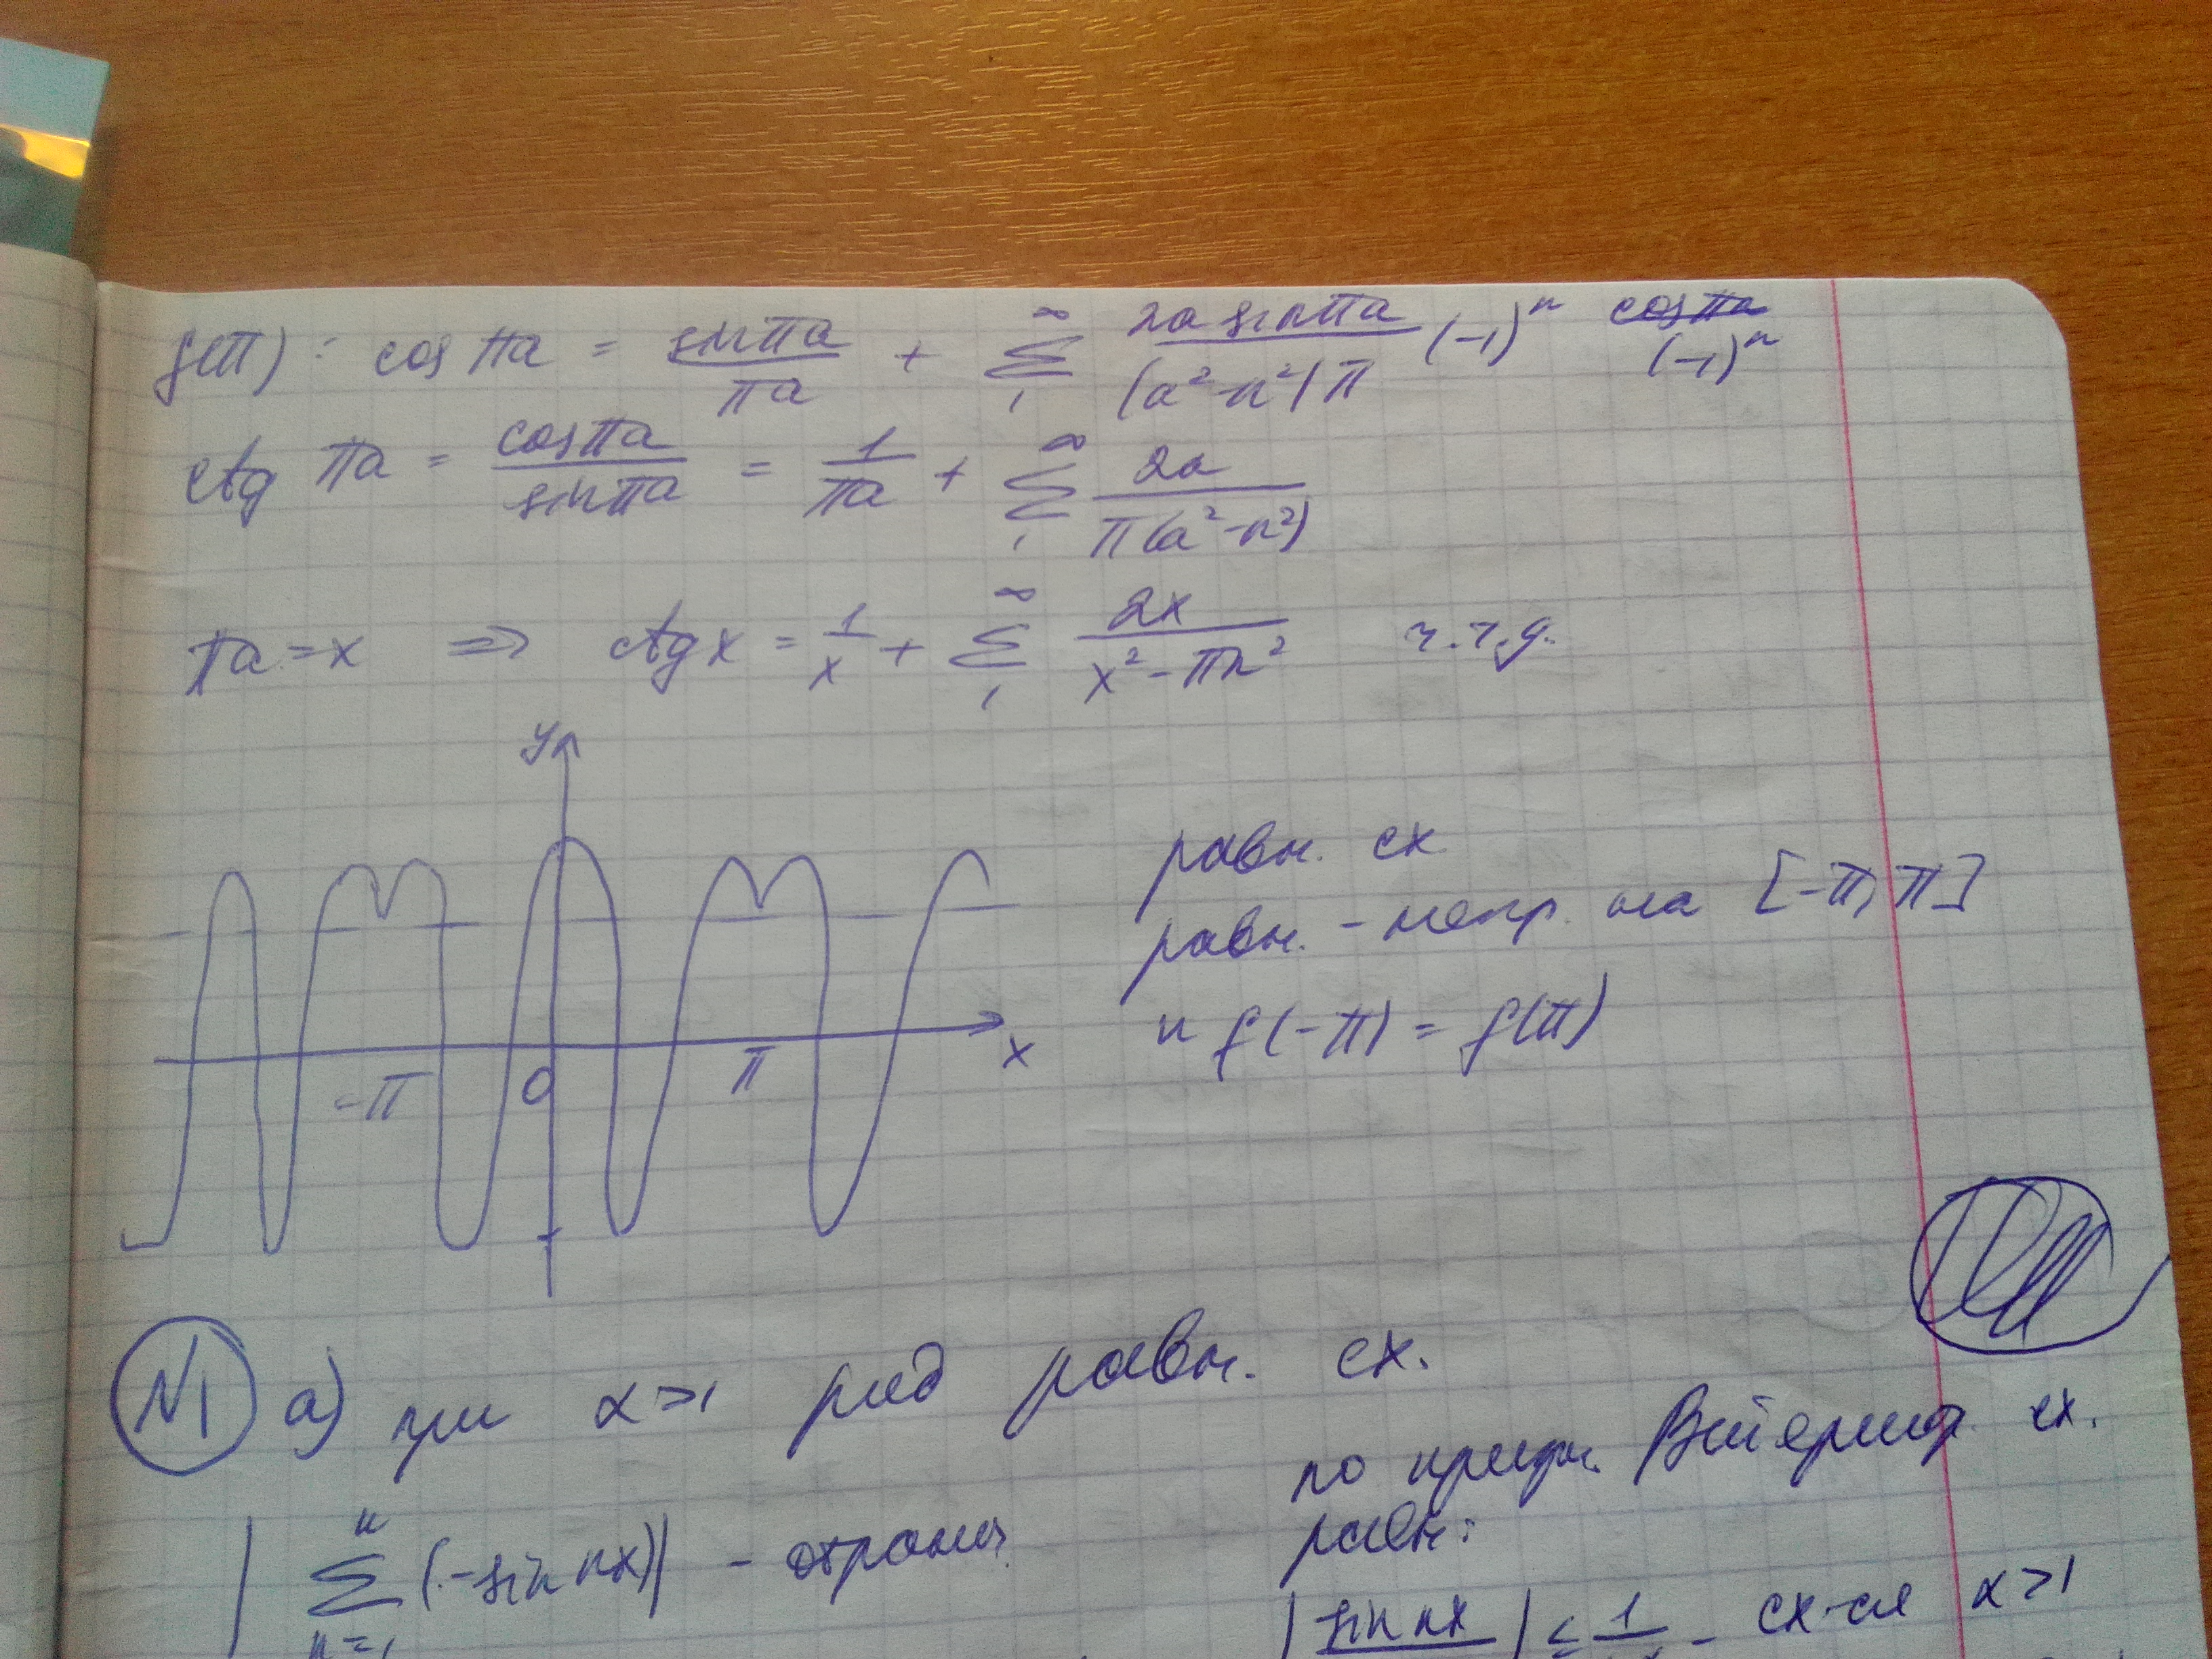 f(π): cos πa = sin πa / πa + ∑₁^∞ 2a sin πa / (a²-n²)π (-1)ⁿ cos πa (-1)ⁿ
ctg πa = cos πa / sin πa = 1 / πa + ∑₁^∞ 2a / π(a²-n²)
πa = x ⇒ ctg x = 1/x + ∑₁^∞ 2x / x² - πn² ч.т.д.
y
равн. сх
равн. - непр. на [-π, π]
и f(-π) = f(π)
-π 0 π x
N1 а) при α>1 ряд равн. сх.
по призн. сх.
равн:
| ∑ⁿₙ₌₁ (-sin nx)| - огранич.
| sin nx | ≤ 1 - сх-ся α>1